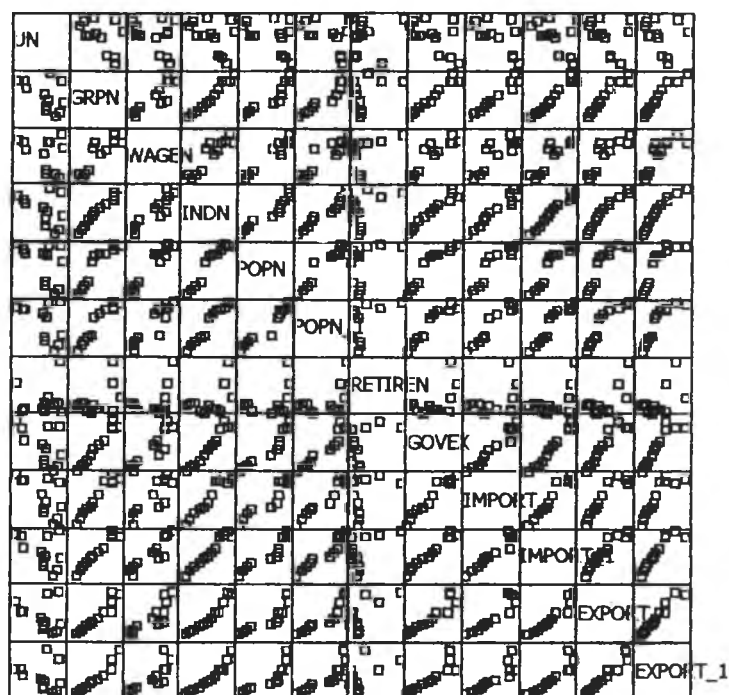 UN
GRPN
WAGEN
INDN
POPN
POPN
RETIREN
GOVEX
IMPORT
IMPORT_1
EXPORT
EXPORT_1